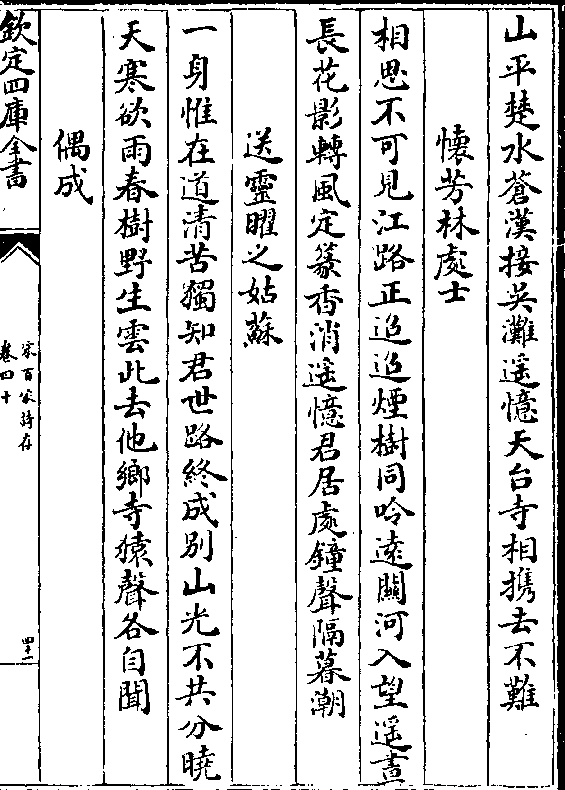 山平楚水蒼漢接吳灘遥憶天台寺相攜去不難
懷芳林處士
相思不可見江路正迢迢煙樹同吟遠關河入望遥晝
長花影轉風定篆香消遥憶君居處鐘聲隔暮潮
送靈曜之姑蘇
一身惟在道清苦獨知君世路終成別山光不共分曉
天寒欲雨春樹野生雲此去他鄉寺猿聲各自聞
偶成
欽定四庫全書
宋百家詩存
卷四十
四十二